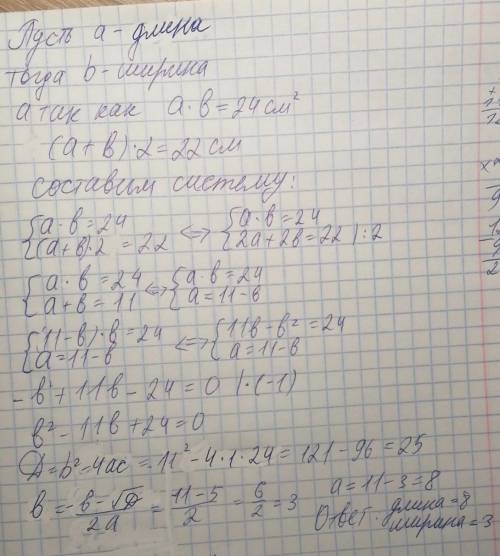 Пусть a - длина
тогда b - ширина
а так как a·b = 24 см²
(a+b)·2 = 22 см
составим систему:
{a·b = 24 {(a+b)·2 = 22 <=> {a·b = 24 {2a+2b = 22 |:2
{a·b = 24 {a+b = 11 <=> {a·b = 24 {a = 11-b
{(11-b)·b = 24 {a = 11-b <=> {11b-b² = 24 {a = 11-b
-b²+11b-24 = 0 |·(-1)
b²-11b+24 = 0
D = b²-4ac = 11²-4·1·24 = 121-96 = 25
b = -b-√D / 2a = 11-5 / 2 = 6/2 = 3 a = 11-3 = 8
Ответ: длина = 8
ширина = 3